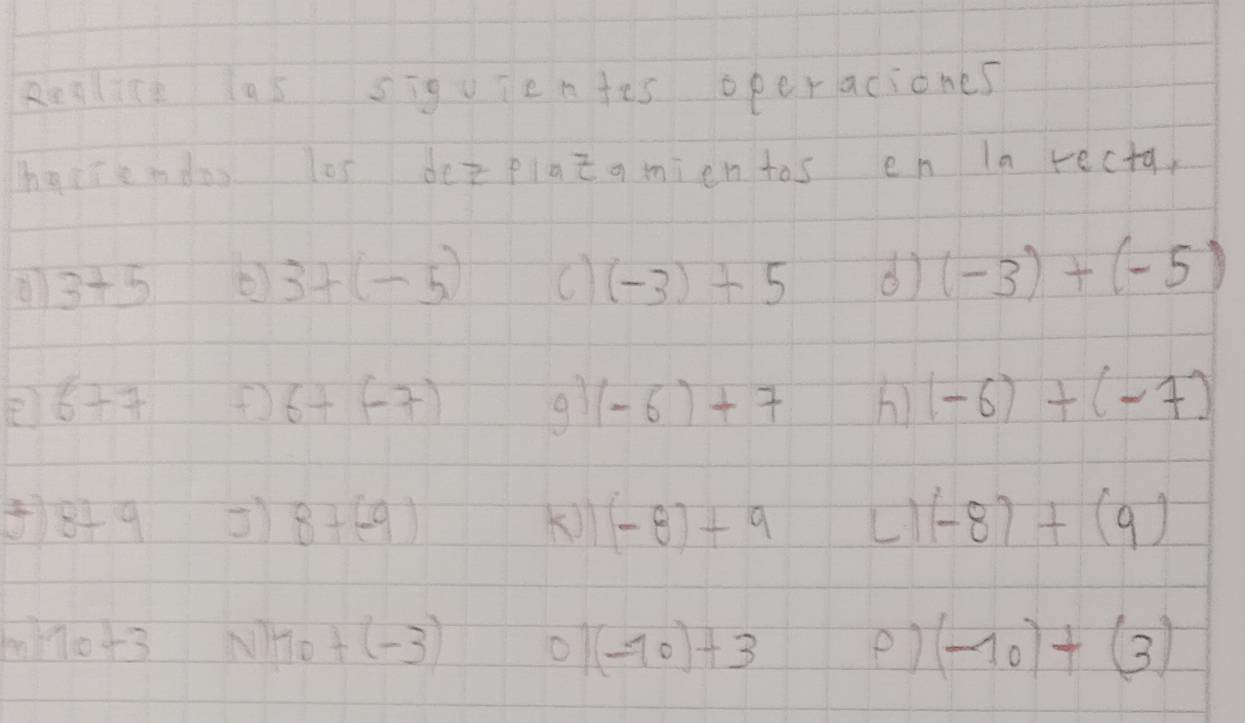 Realice las siguientes operaciones
haciendos los dezplazamientos en la recta.
a) 3+5 b) 3+(-5) c) (-3) + 5 d) (-3) + (-5)
e) 6+7 f) 6+ (-7) g) (-6) + 7 h) (-6) + (-7)
I) 8+9 J) 8+(-9) K) (-8) + 9 L) (-8) + (9)
m) 10+3 N) 10 + (-3) O) (-10) + 3 P) (-10) + (3)